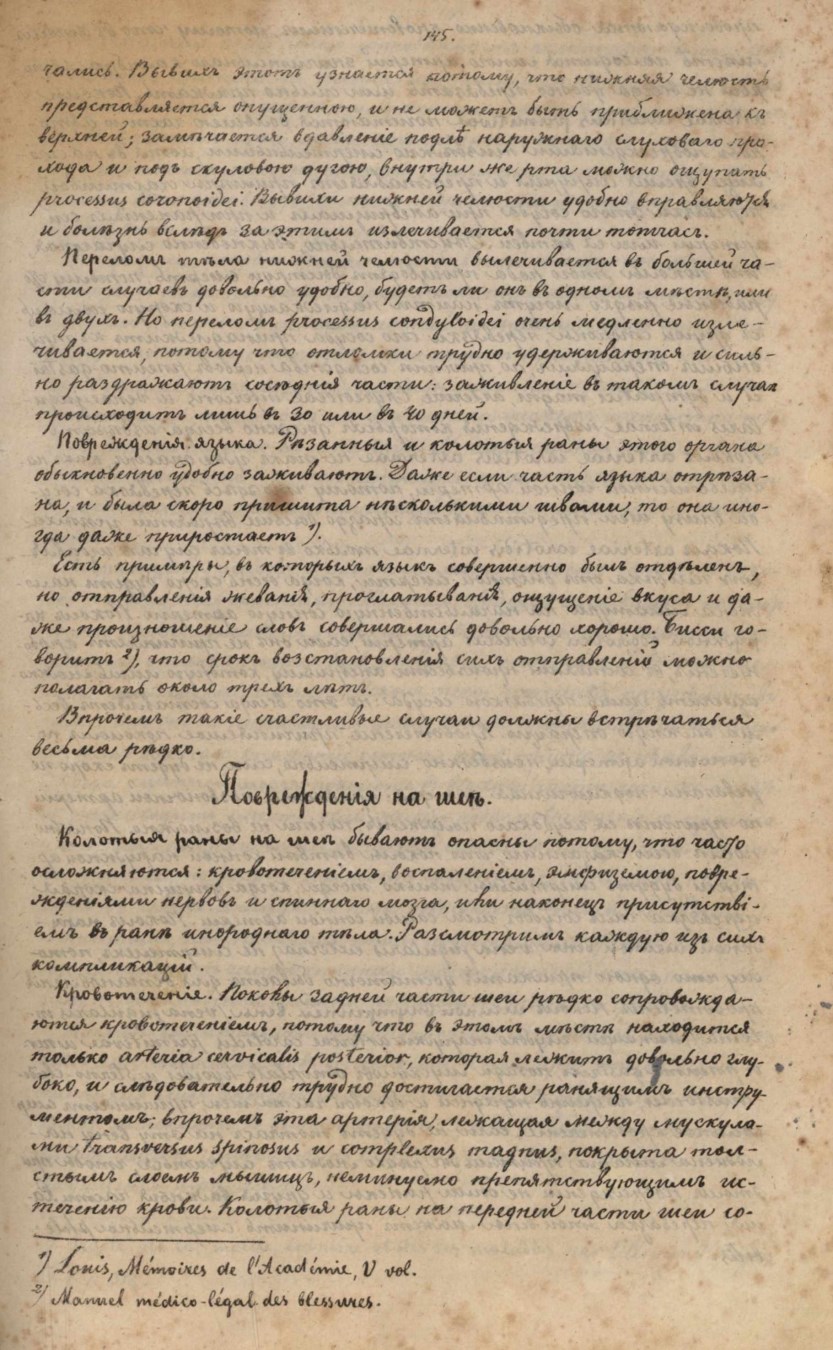 145.
чались. Вывихъ этотъ узнается потому, что нижняя челюсть
представляется опущенною, и не можетъ быть приближена къ
верхней; замѣчается вдавленіе подлѣ наружнаго слуховаго про-
хода и подъ скуловою дугою, внутри же рта можно ощупать
processus coronoidei. Вывихи нижней челюсти удобно вправляются
и болѣзнь вслѣдъ за этимъ излечивается почти тотчасъ.
Переломъ тѣла нижней челюсти вылечивается въ большей ча-
сти случаевъ довольно удобно, будетъ ли онъ въ одномъ мѣстѣ, или
въ двухъ. Но переломъ processus condyloidei очень медленно изле-
чивается, потому что отломки трудно удерживаются и силь-
но раздражаютъ сосѣднія части: заживленіе въ такомъ случаѣ
происходитъ лишь въ 30 или въ 40 дней.
Поврежденія языка. Рѣзанныя и колотыя раны этого органа
обыкновенно удобно заживаютъ. Даже если часть языка отрѣза-
на, и была скоро пришита нѣсколькими швами, то она ино-
гда даже приростаетъ ¹).
Есть примѣры, въ которыхъ языкъ совершенно былъ отдѣленъ,
но отправленія жеванія, проглатыванія, ощущеніе вкуса и да-
же произношеніе словъ совершались довольно хорошо. Бисси го-
воритъ ²), что срокъ возстановленія сихъ отправленій можно
полагать около трехъ лѣтъ.
Впрочемъ такіе счастливые случаи должны встрѣчаться
весьма рѣдко.
Поврежденія на шеѣ.
Колотыя раны на шеѣ бываютъ опасны потому, что часто
осложняются: кровотеченіемъ, воспаленіемъ, эмфиземою, повре-
жденіями нервовъ и спиннаго мозга, или наконецъ присутстві-
емъ въ ранѣ инороднаго тѣла. Разсмотримъ каждую изъ сихъ
компликацій.
Кровотеченіе. Поколы задней части шеи рѣдко сопровожда-
ются кровотеченіемъ, потому что въ этомъ мѣстѣ находится
только arteria cervicalis posterior, которая лежитъ довольно глу-
боко, и слѣдовательно трудно достигается ранящимъ инстру-
ментомъ; впрочемъ эта артерія, лежащая между мускула-
ми transversus spinosus и complexus magnus, покрыта тол-
стымъ слоемъ мышицъ, неминуемо препятствующимъ ис-
теченію крови. Колотыя раны на передней части шеи со-
¹) Louis, Mémoires de l'Académie, V vol.
²) Manuel médico-légal des blessures.